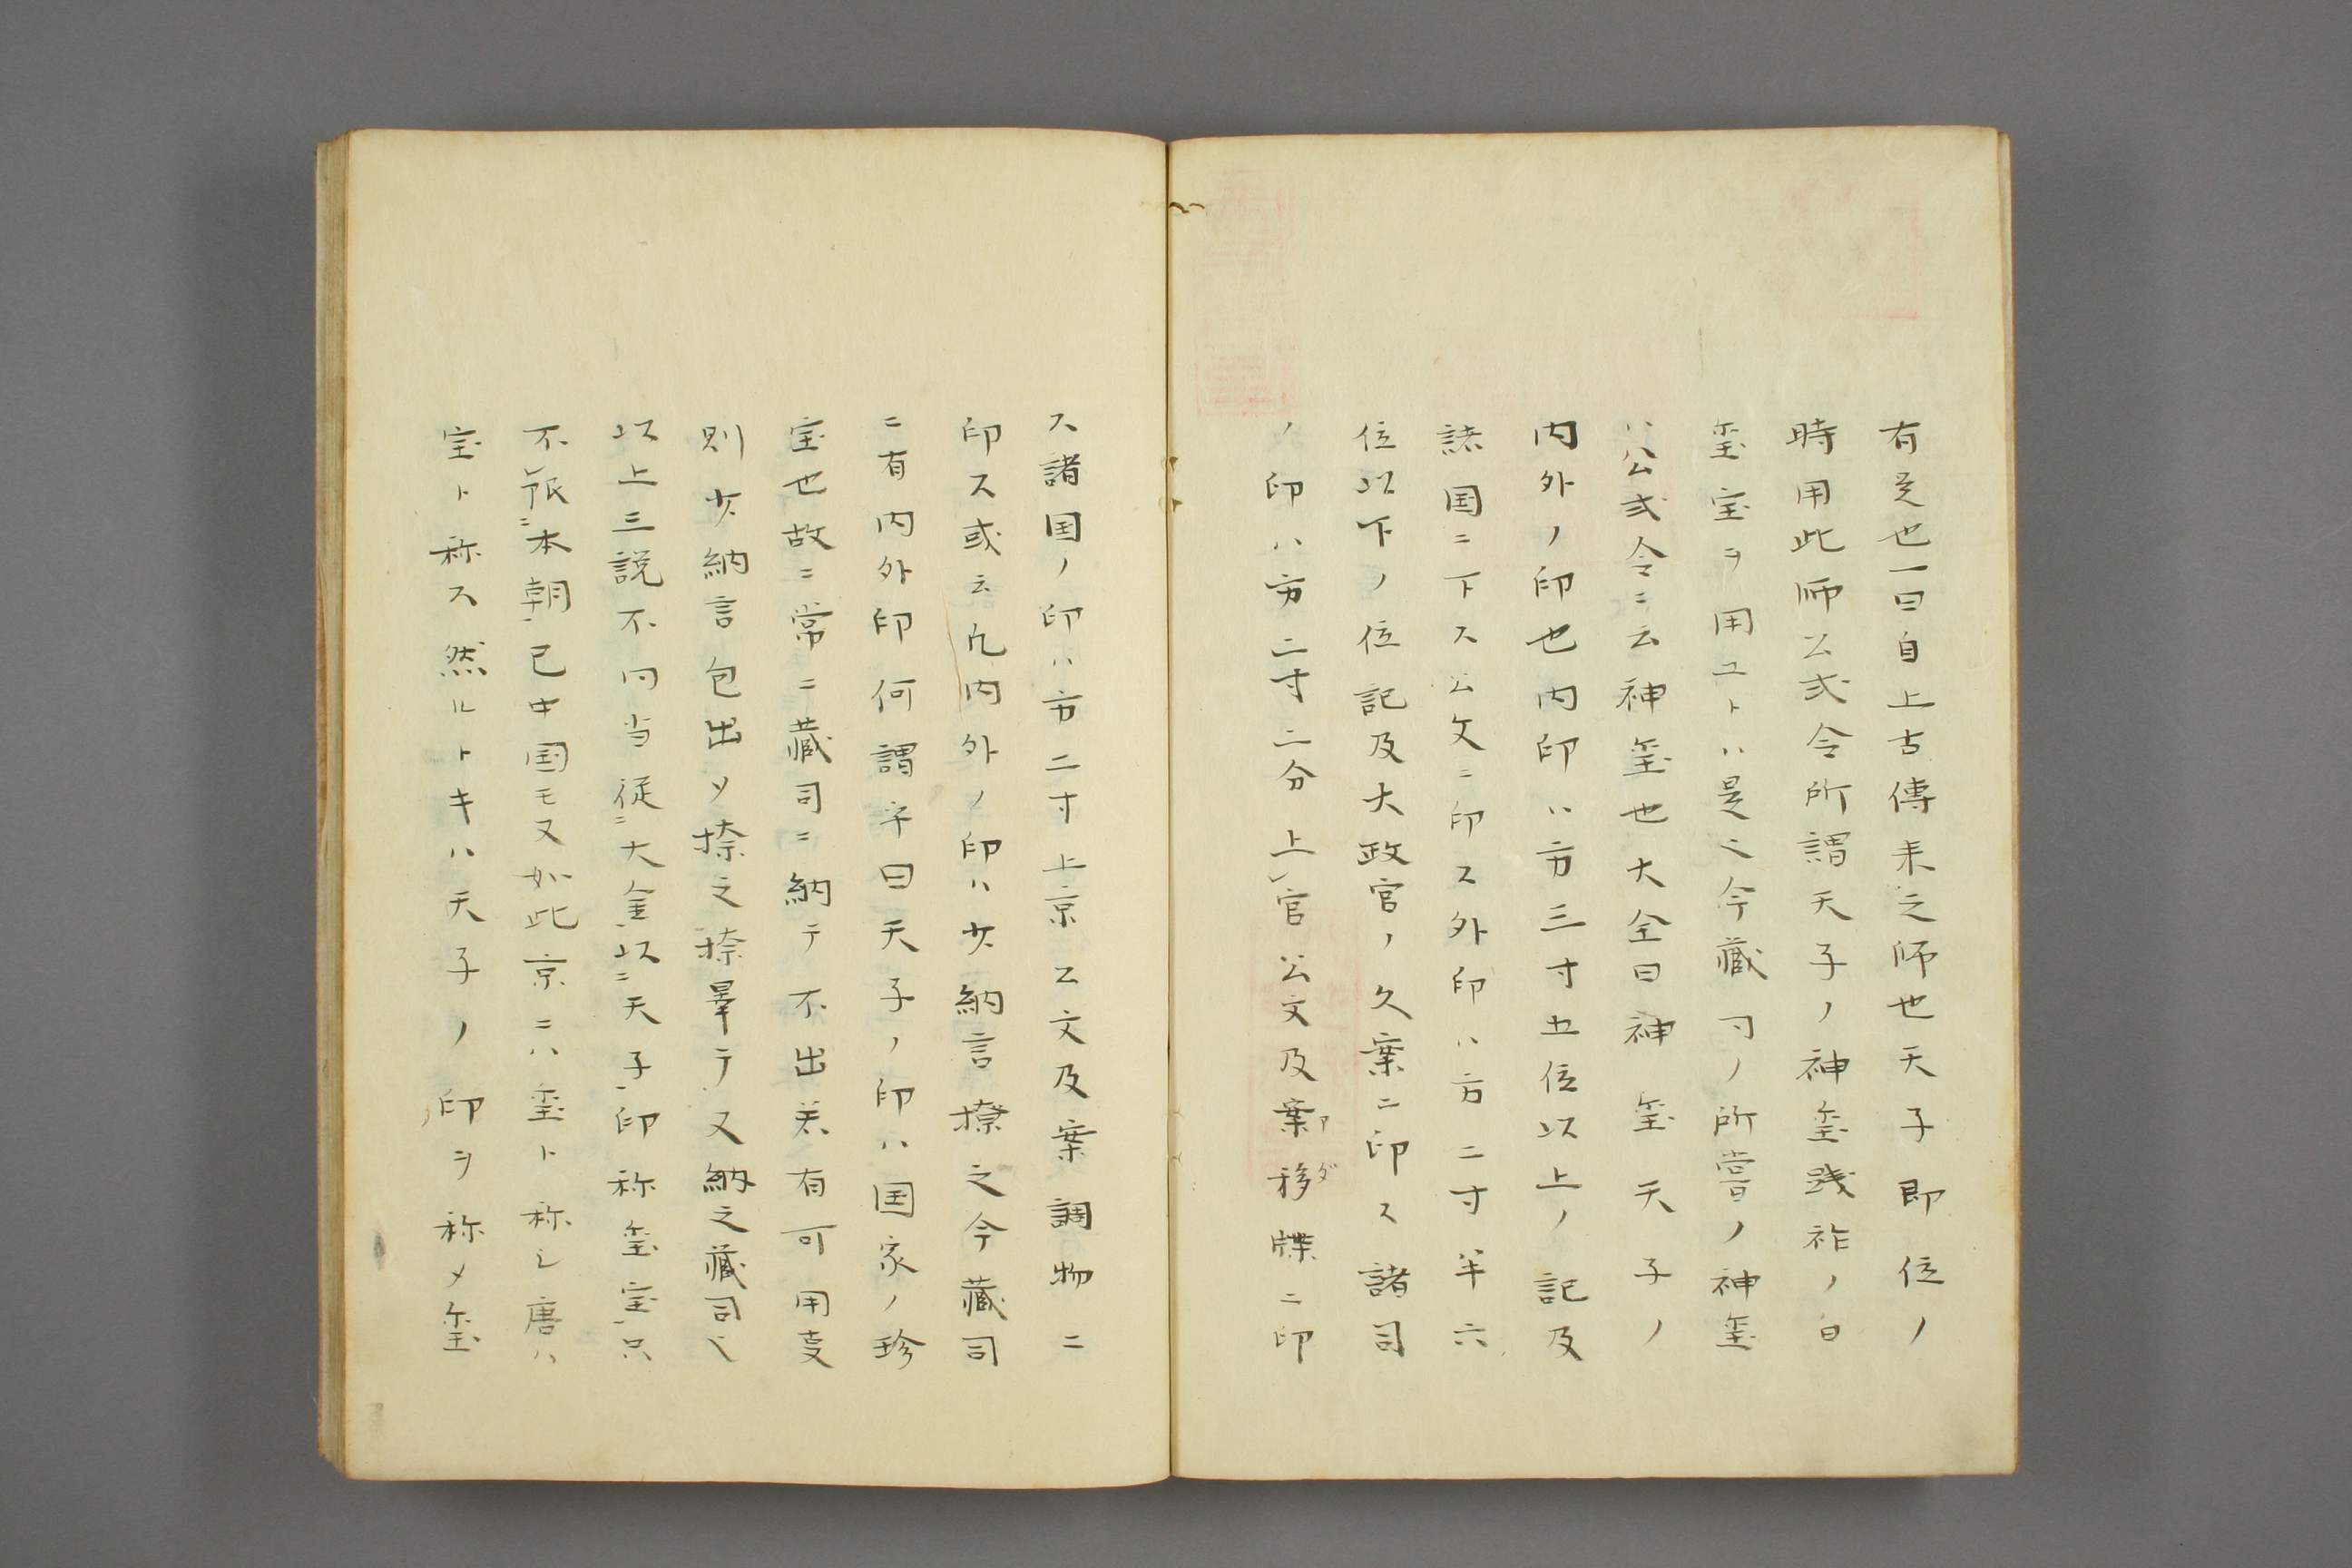 有是也一曰自上古傳来之師也天子即位ノ
時用此師公式令所謂天子ノ神璽践祚ノ日
璽宝ヲ用ユトハ是也今藏司ノ所掌ノ神璽
ハ公式令ニ云神璽也大全曰神璽天子ノ
内外ノ印也内印ハ方三寸五位以上ノ記及
諸国ニ下ス公文ニ印ス外印ハ方二寸半六
位以下ノ位記及大政官ノ久案ニ印ス諸司
ノ印ハ方二寸二分上官公文及案移牒ニ印
ス諸国ノ印ハ方二寸上京公文及案調物ニ
印ス或云凡内外ノ印ハ少納言捺之今藏司
ニ有内外印何謂乎曰天子ノ印ハ国家ノ珍
宝也故ニ常ニ藏司ニ納テ不出若有可用叓
則少納言包出ソ捺之捺畢テ又納之藏司也
以上三説不同当従大全以天子印称璽宝只
不祇本朝已中国モ又如此京ニハ璽ト称シ唐ハ
宝ト称ス然ルトキハ天子ノ印ヲ称メ璽